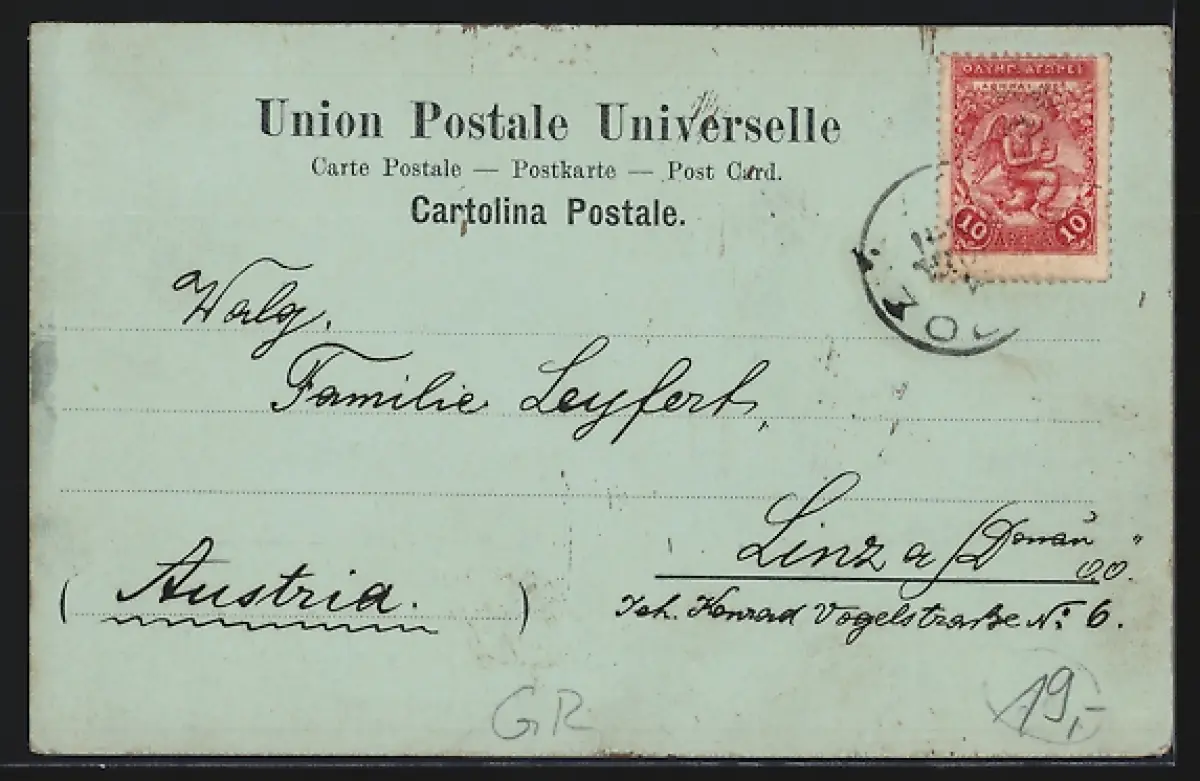 Union Postale Universelle
Carte Postale — Postkarte — Post Card.
Cartolina Postale.
10 10
Walg.
Familie Leyfert,
Linz a/Donau
OÖ.
(Austria.)
Joh. Konrad Vogelstraße No. 6.
GR
19,-